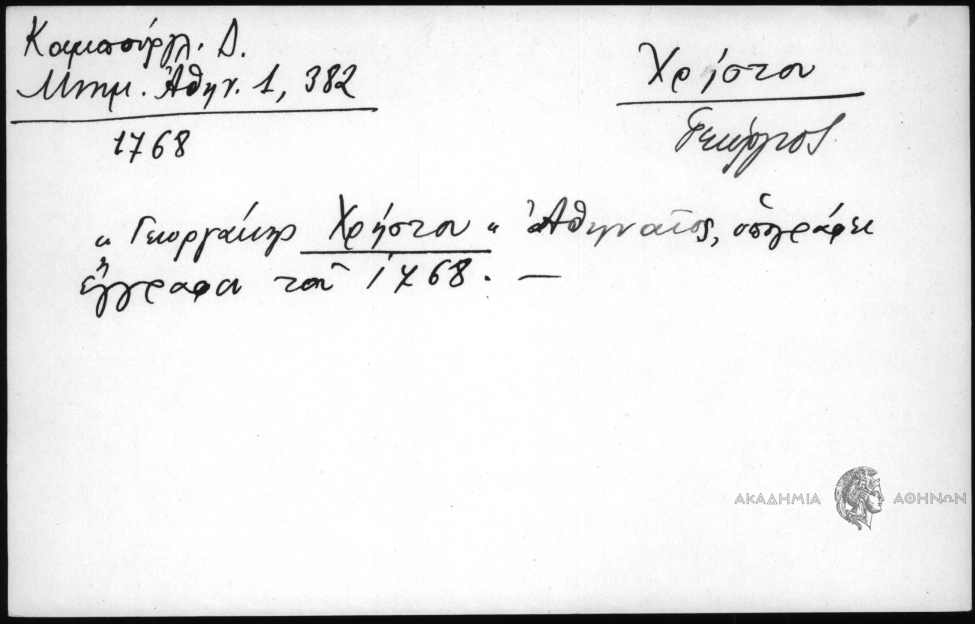 Καμπούργλ. Δ.
Μνημ. Ἀθην. 1, 382
1768
Χρήστου
Γεώργιος
"Γεωργάκης Χρήστου" Ἀθηναῖος, ὑπογράφει
ἔγγραφα τοῦ 1768. —
ΑΚΑΔΗΜΙΑ ΑΘΗΝΩΝ